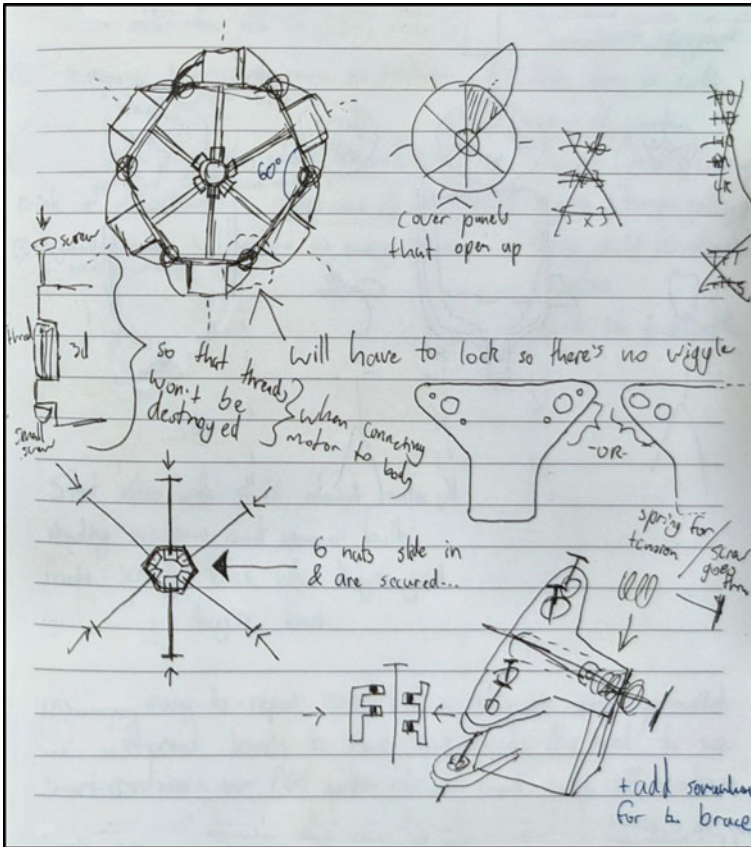 60°
cover panels
that open up
7x6
5x3
screw
3d
so that threads
won't be
destroyed
when connecting
motor to body
small
screw
will have to lock so there's no wiggle
-OR-
6 nuts slide in
& are secured...
spring for
tension
screw
goes
thru
+ add
for brace